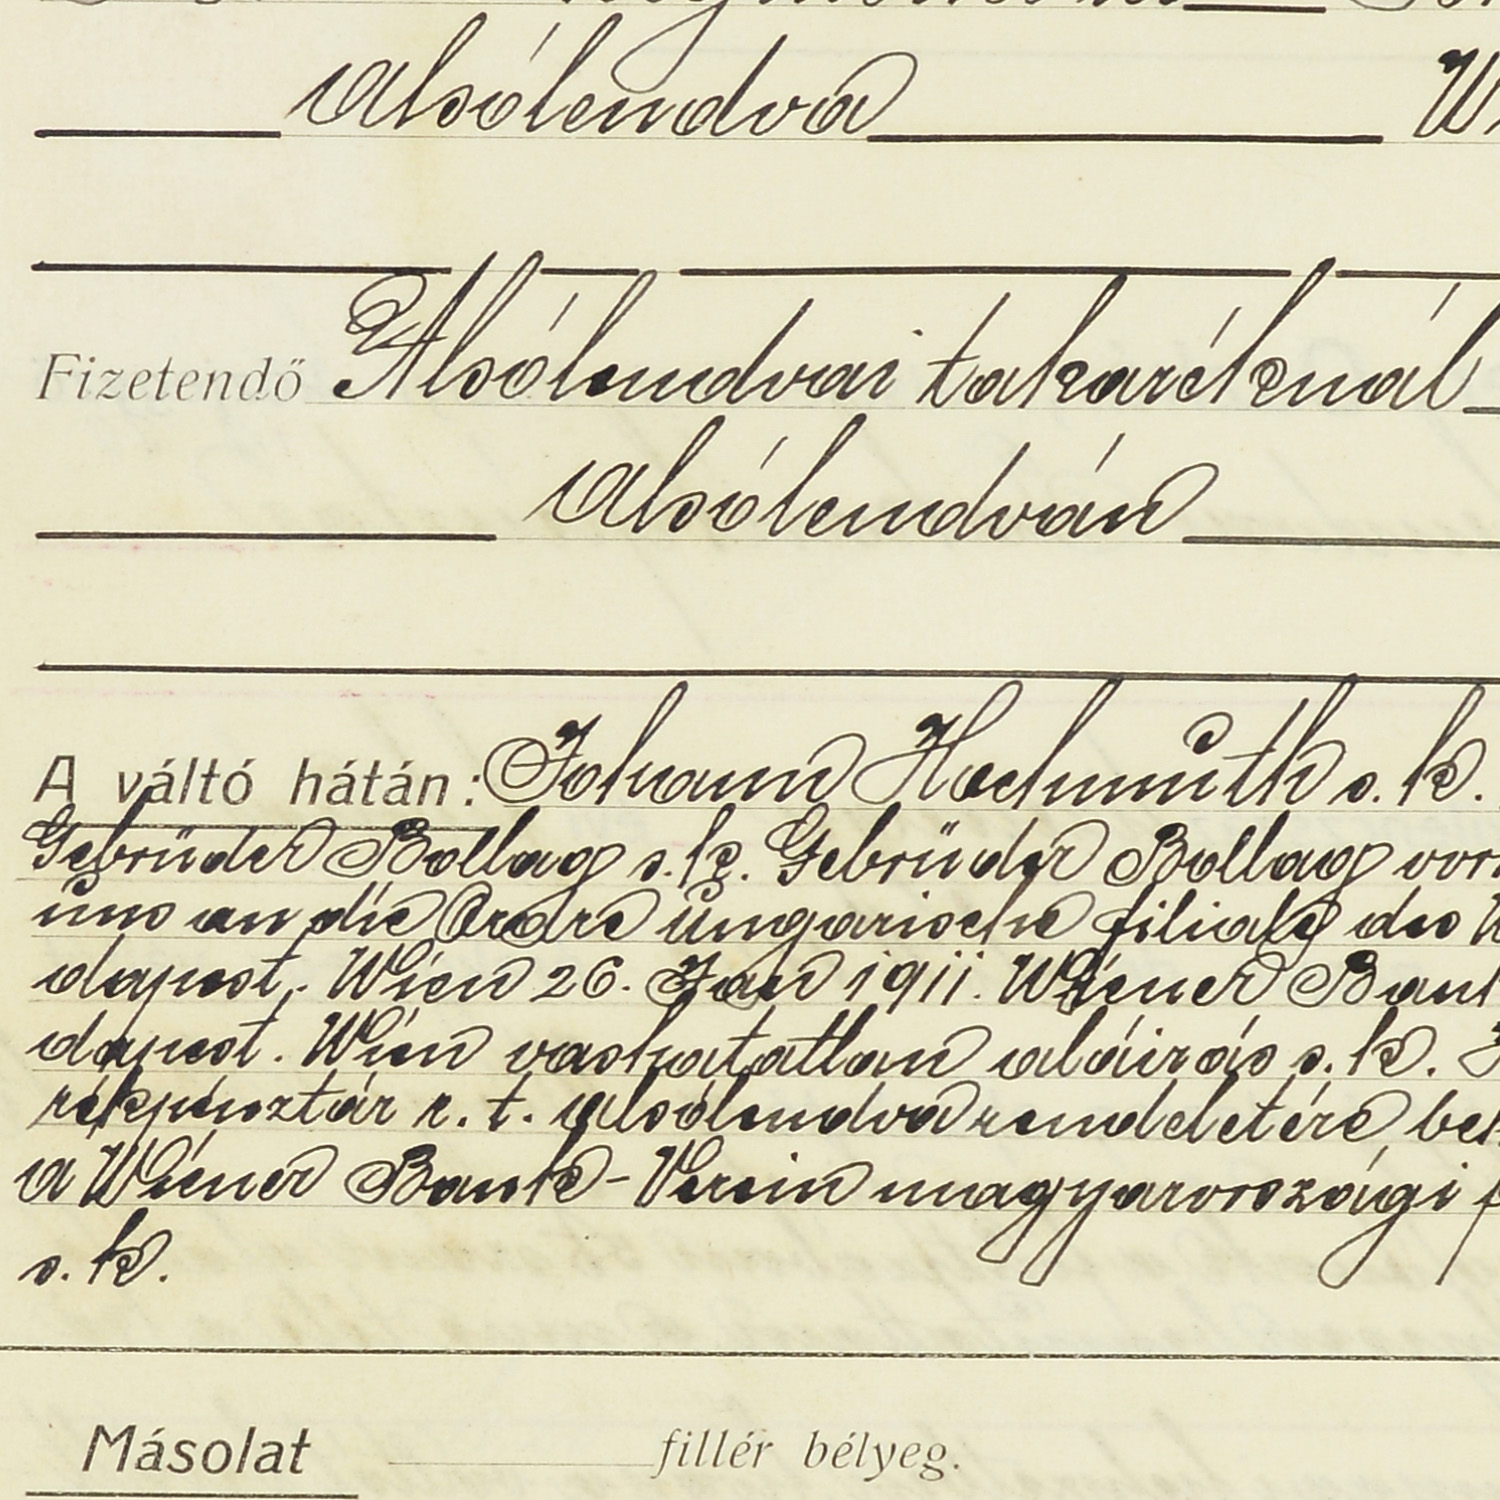 Alsólendva
Fizetendő Alsólendvai takaréknál
Alsólendván
A váltó hátán: Johann Hochmuth s. k.
Gebrüder Bollag s. k. Gebrüder Bollag vorm
uns an die Ordre Ungarische filiale des W
dapest. Wien 26. Jan 1911. Wiener Bank
dapest. Wien olvashatatlan aláirás s. k.
rékpénztár r. t. Alsólendva rendeletére
a Wiener Bank-Verein magyarországi f
s. k.
Másolat fillér bélyeg.